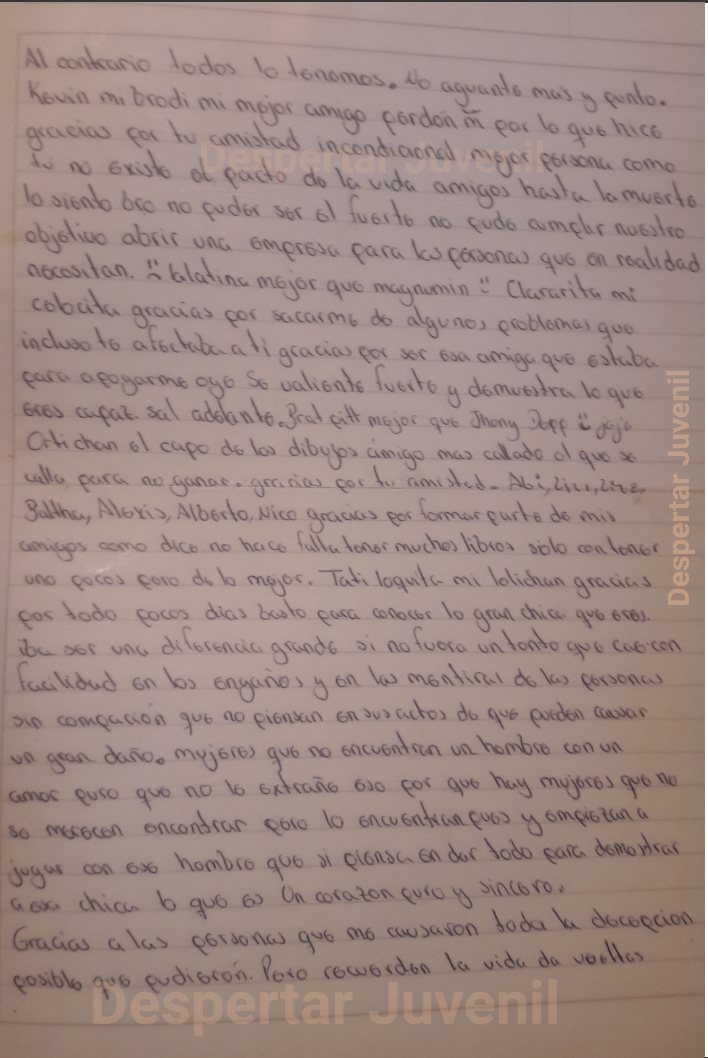 Al contrario todos lo tenemos. No aguanto mas y punto.
Kevin mi brodi mi mejor amigo perdón por lo que hice
gracias por tu amistad incondicional mejor persona como
tu no existe el pacto de la vida amigos hasta la muerte
lo siento bro no puder ser el fuerte no pude cumplir nuestro
objetivo abrir una empresa para las personas que en realidad
necesitan. Galatina mejor que magnumin Clararita mi
colocita gracias por sacarme de algunos problemas que
incluso te afectaba a ti gracias por ser esa amiga que estaba
para apoyarme oye Se valiente fuerte y demuestra lo que
eres capaz. sal adelante. Brat pitt mejor que Jhony Depp jeje
Critichan el capo de los dibujos amigo mas callado el que se
calla para no ganar. gracias por tu amistad. Abi,
Baltha, Alexis, Alberto, Nico gracias por formar parte de mis
amigos como dice no hace falta tener muchos libros solo con tener
uno pocos pero de lo mejor. Tati loquita mi lolichan gracias
por todo pocos dias basto para conocer lo gran chica que eres.
iba ser una diferencia grande si no fuera un tonto que cae con
facilidad en los engaños y en las mentiras de las personas
sin compación que no piensan en sus actos de que pueden causar
un gran daño. mujeres que no encuentran un hombre con un
amor puro que no lo extrañe eso por que hay mujeres que no
se merecen encontrar pero lo encuentran pues y empiezan a
jugar con ese hombre que si piensa en dar todo para demostrar
a esa chica lo que es Un corazon puro y sincero.
Gracias a las personas que me causaron toda la decepcion
posible que pudieron. Pero recuerden la vida da vueltas
Despertar Juvenil
Despertar Juvenil
Despertar Juvenil